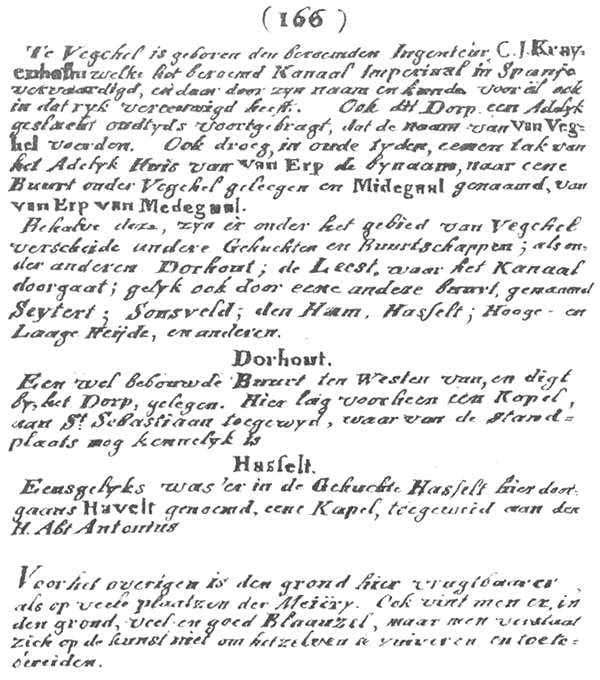 (166)
Te Vegchel is geboren den beroemden Ingenieur, C. J. Kray-
enhoff welke het beroemd Kanaal Imperiaal in Spanje
vervaardigd, en daar door zyn naam en kunde voor al ook
in dat ryk vereeuwigd heeft. Ook dit Dorp een Adelyk
geslacht oudtyds voortgebragt, dat de naam van Van Veg-
hel voerden. Ook droeg, in oude tyden, eenen tak van
het Adelyk Huis van van Erp de bynaam, naar eene
Buurt onder Vegchel geleegen en Midegaal genaamd, van
van Erp van Medegaal.
Behalve deze, zyn er onder het gebied van Vegchel
verscheide andere Gehuchten en Buurtschappen; als on-
der anderen Dorhout; de Leest, waar het Kanaal
doorgaat; gelyk ook door eene andere buurt, genaamd
Seytert; Sonsveld; den Ham, Hasselt; Hooge- en
Laage Heijde, en anderen.
Dorhout.
Een wel bebouwde Buurt ten Westen van, en digt
by, het Dorp, gelegen. Hier lag voorheen een Kapel,
aan St. Sebastiaan toegewyd, waar van de stand=
plaats nog kennelyk is
Hasselt.
Eensgelyks was 'er in de Gehuchte Hasselt hier door-
gaans Havelt genoemd, eene Kapel, toegeweid aan den
H. Abt Antonius
Voor het overigen is den grond hier vrugtbaarer,
als op veele plaatzen der Meiëry. Ook vint men er, in
den grond, veel en goed Blaauzel, maar men verstaat
zich op de kunst niet om hetzelven te zuiveren en toete=
bereiden.